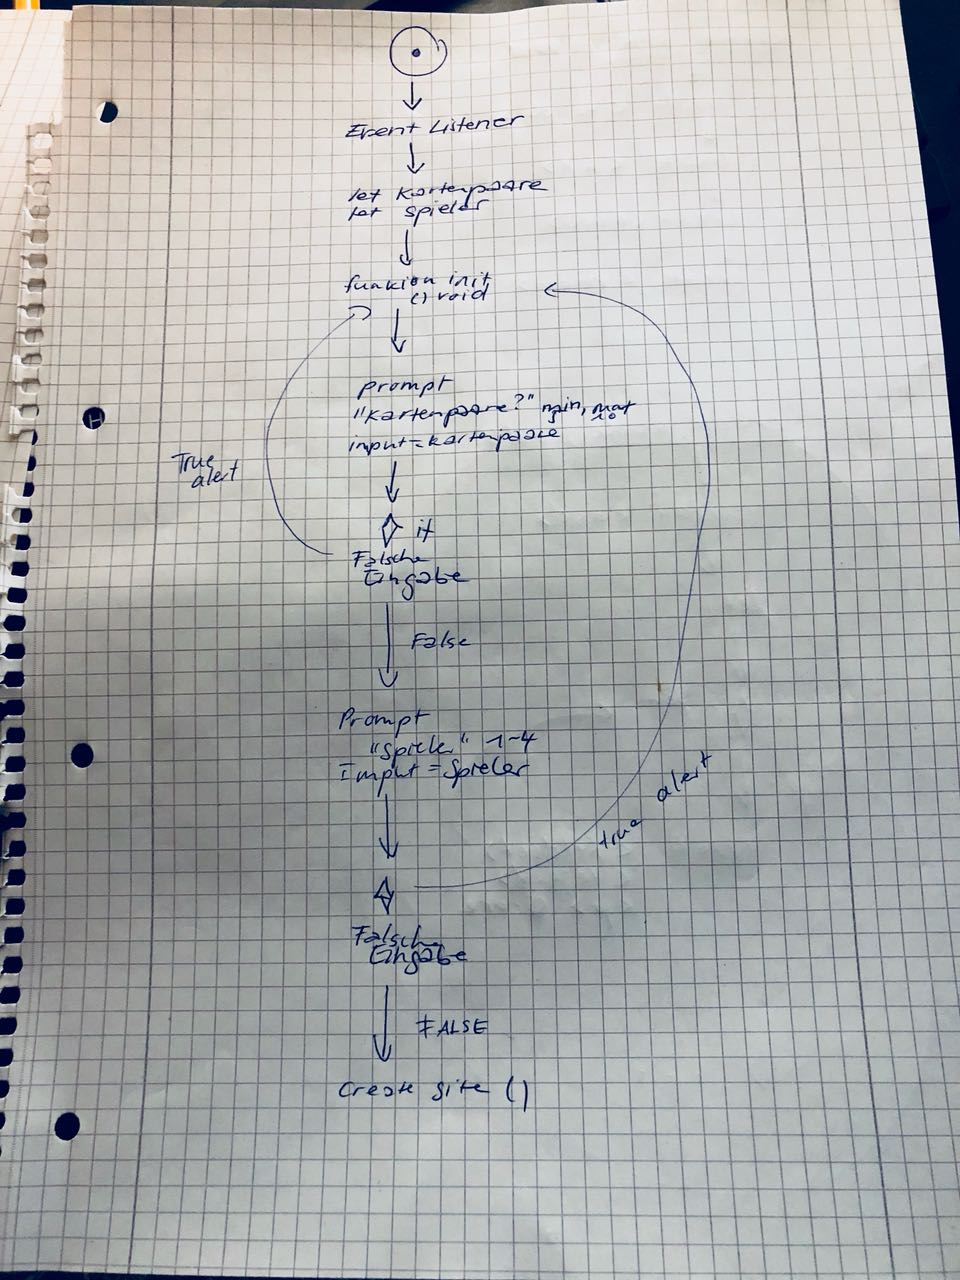 Event Listener
let Kartenpaare
let Spieler
funkion init
() void
prompt
"Kartenpaare?" min, max
10
input = kartenpaare
True
alert
if
Falsche
Eingabe
False
Prompt
"Spieler" 1-4
Imput = Spieler
true alert
Falsche
Eingabe
FALSE
Create Site ()